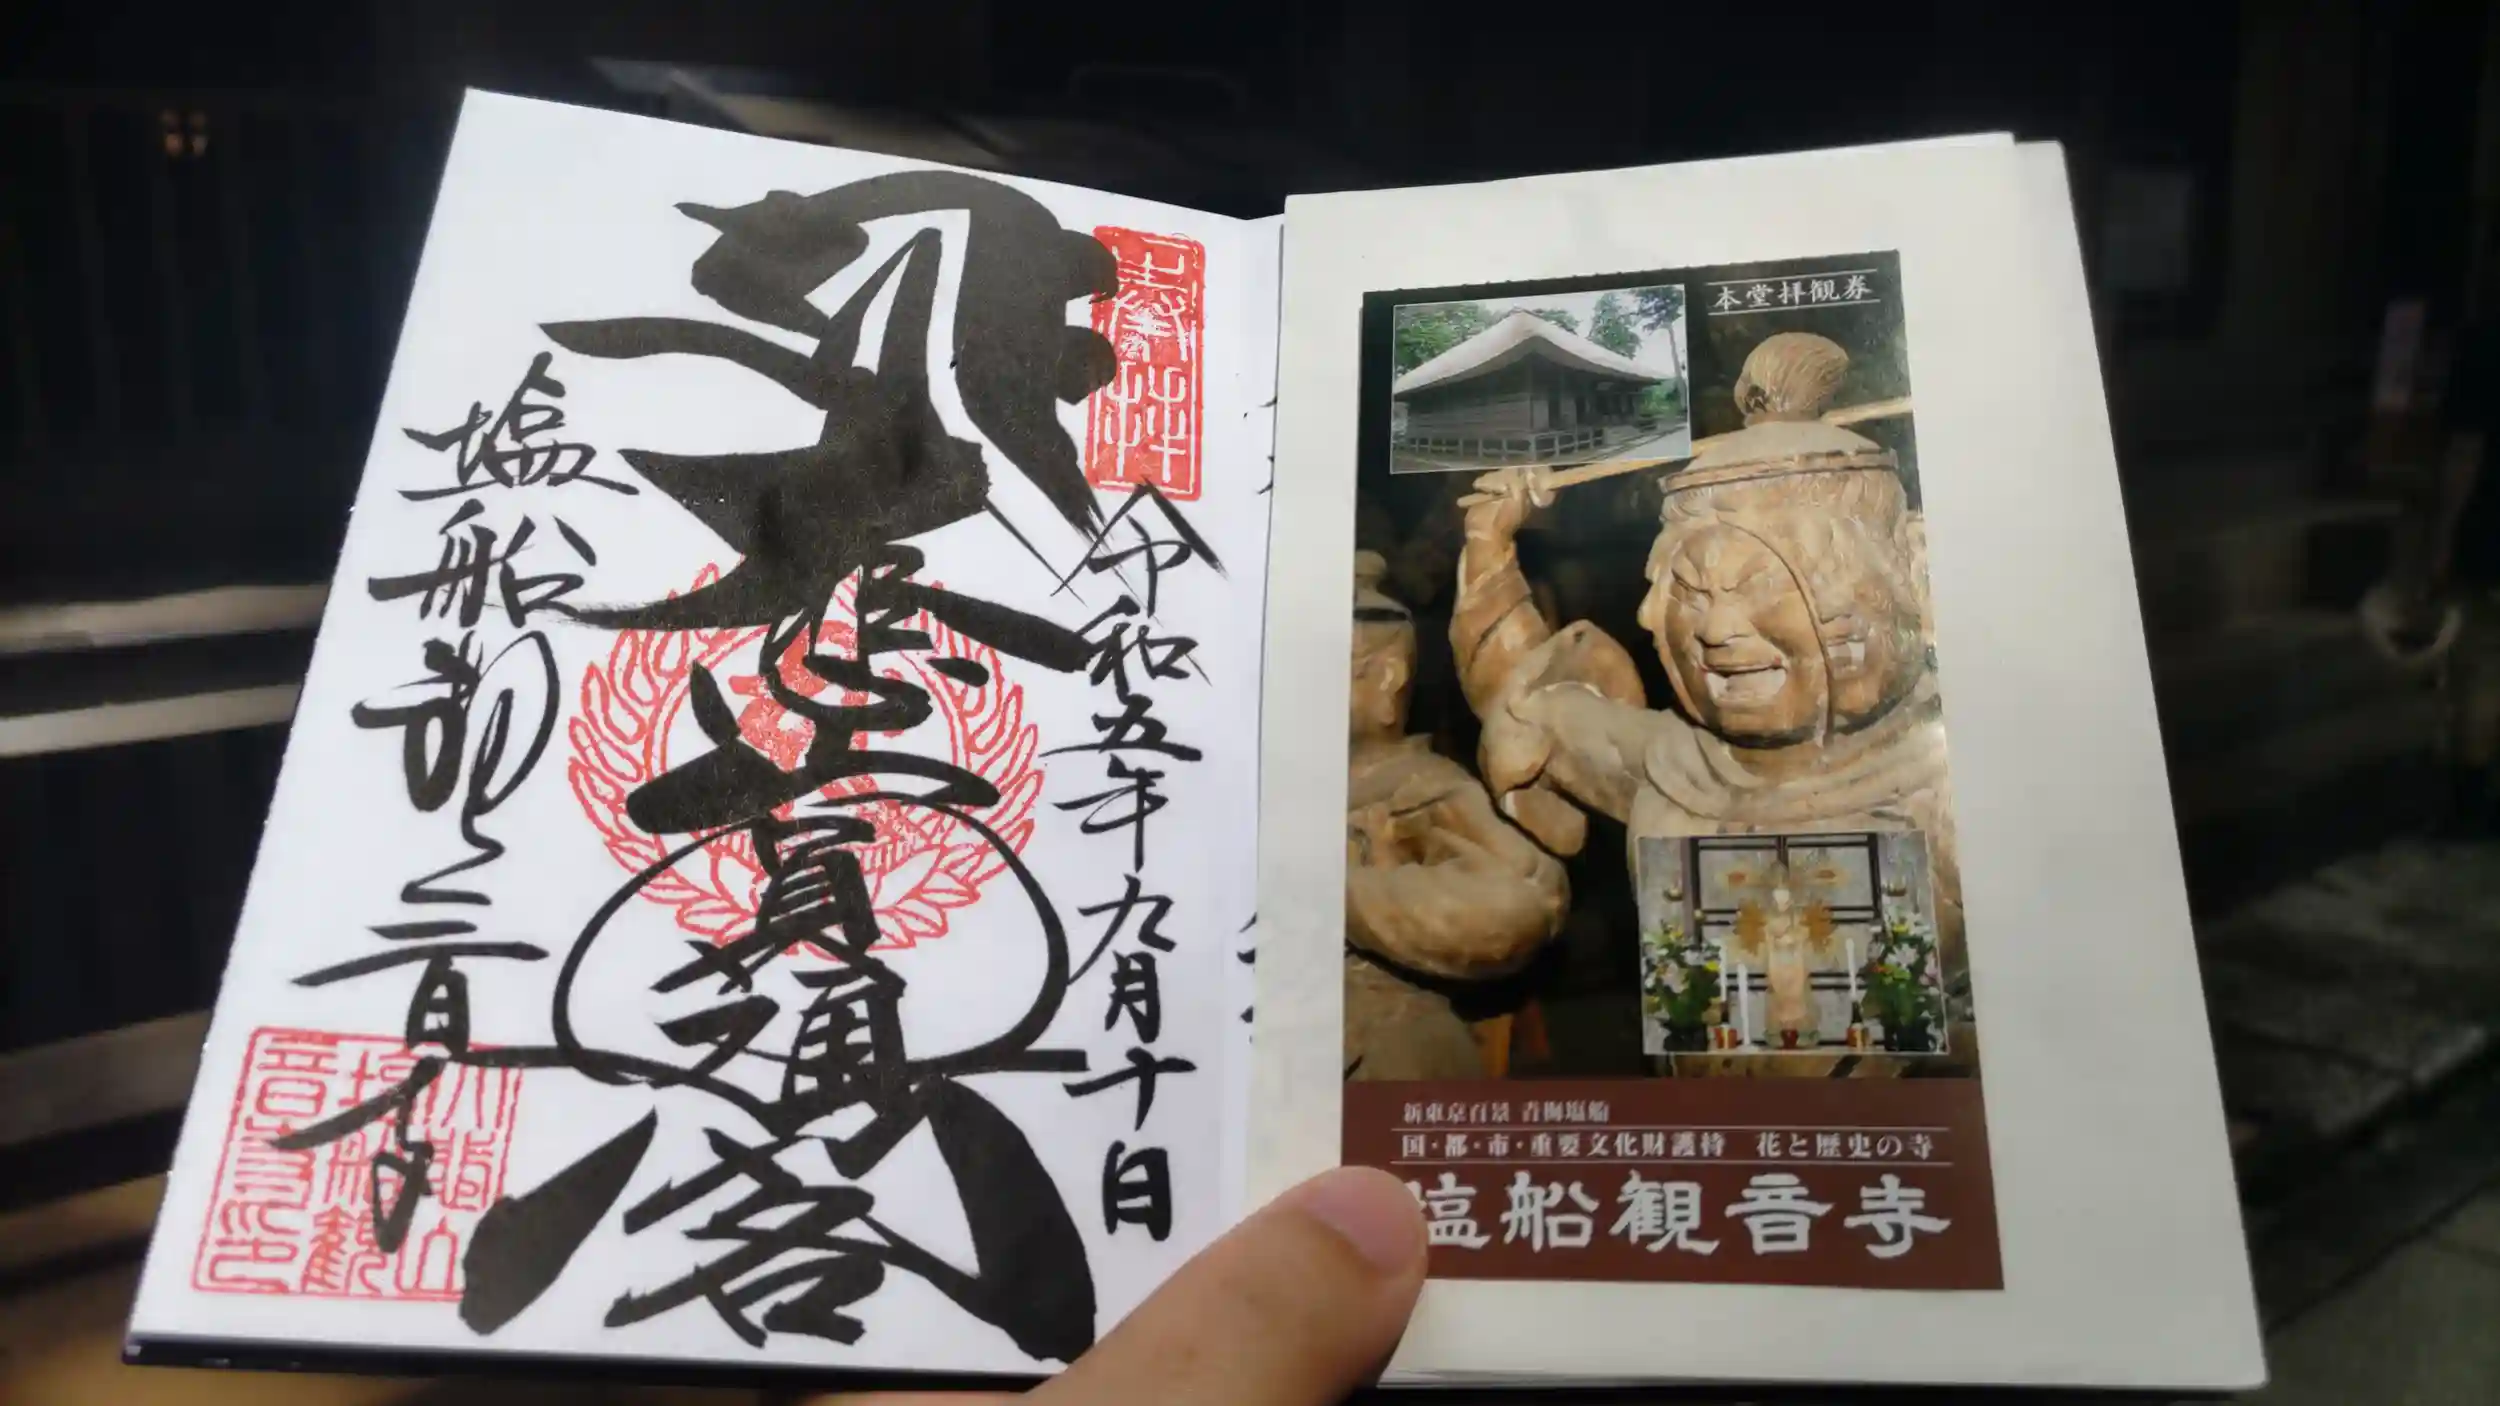 奉拝
令和五年九月十日
大悲圓通閣
塩船観音寺
大悲山
塩船観
音寺印
本堂拝観券
新東京百景 青梅塩船
国・都・市・重要文化財護持 花と歴史の寺
塩船観音寺